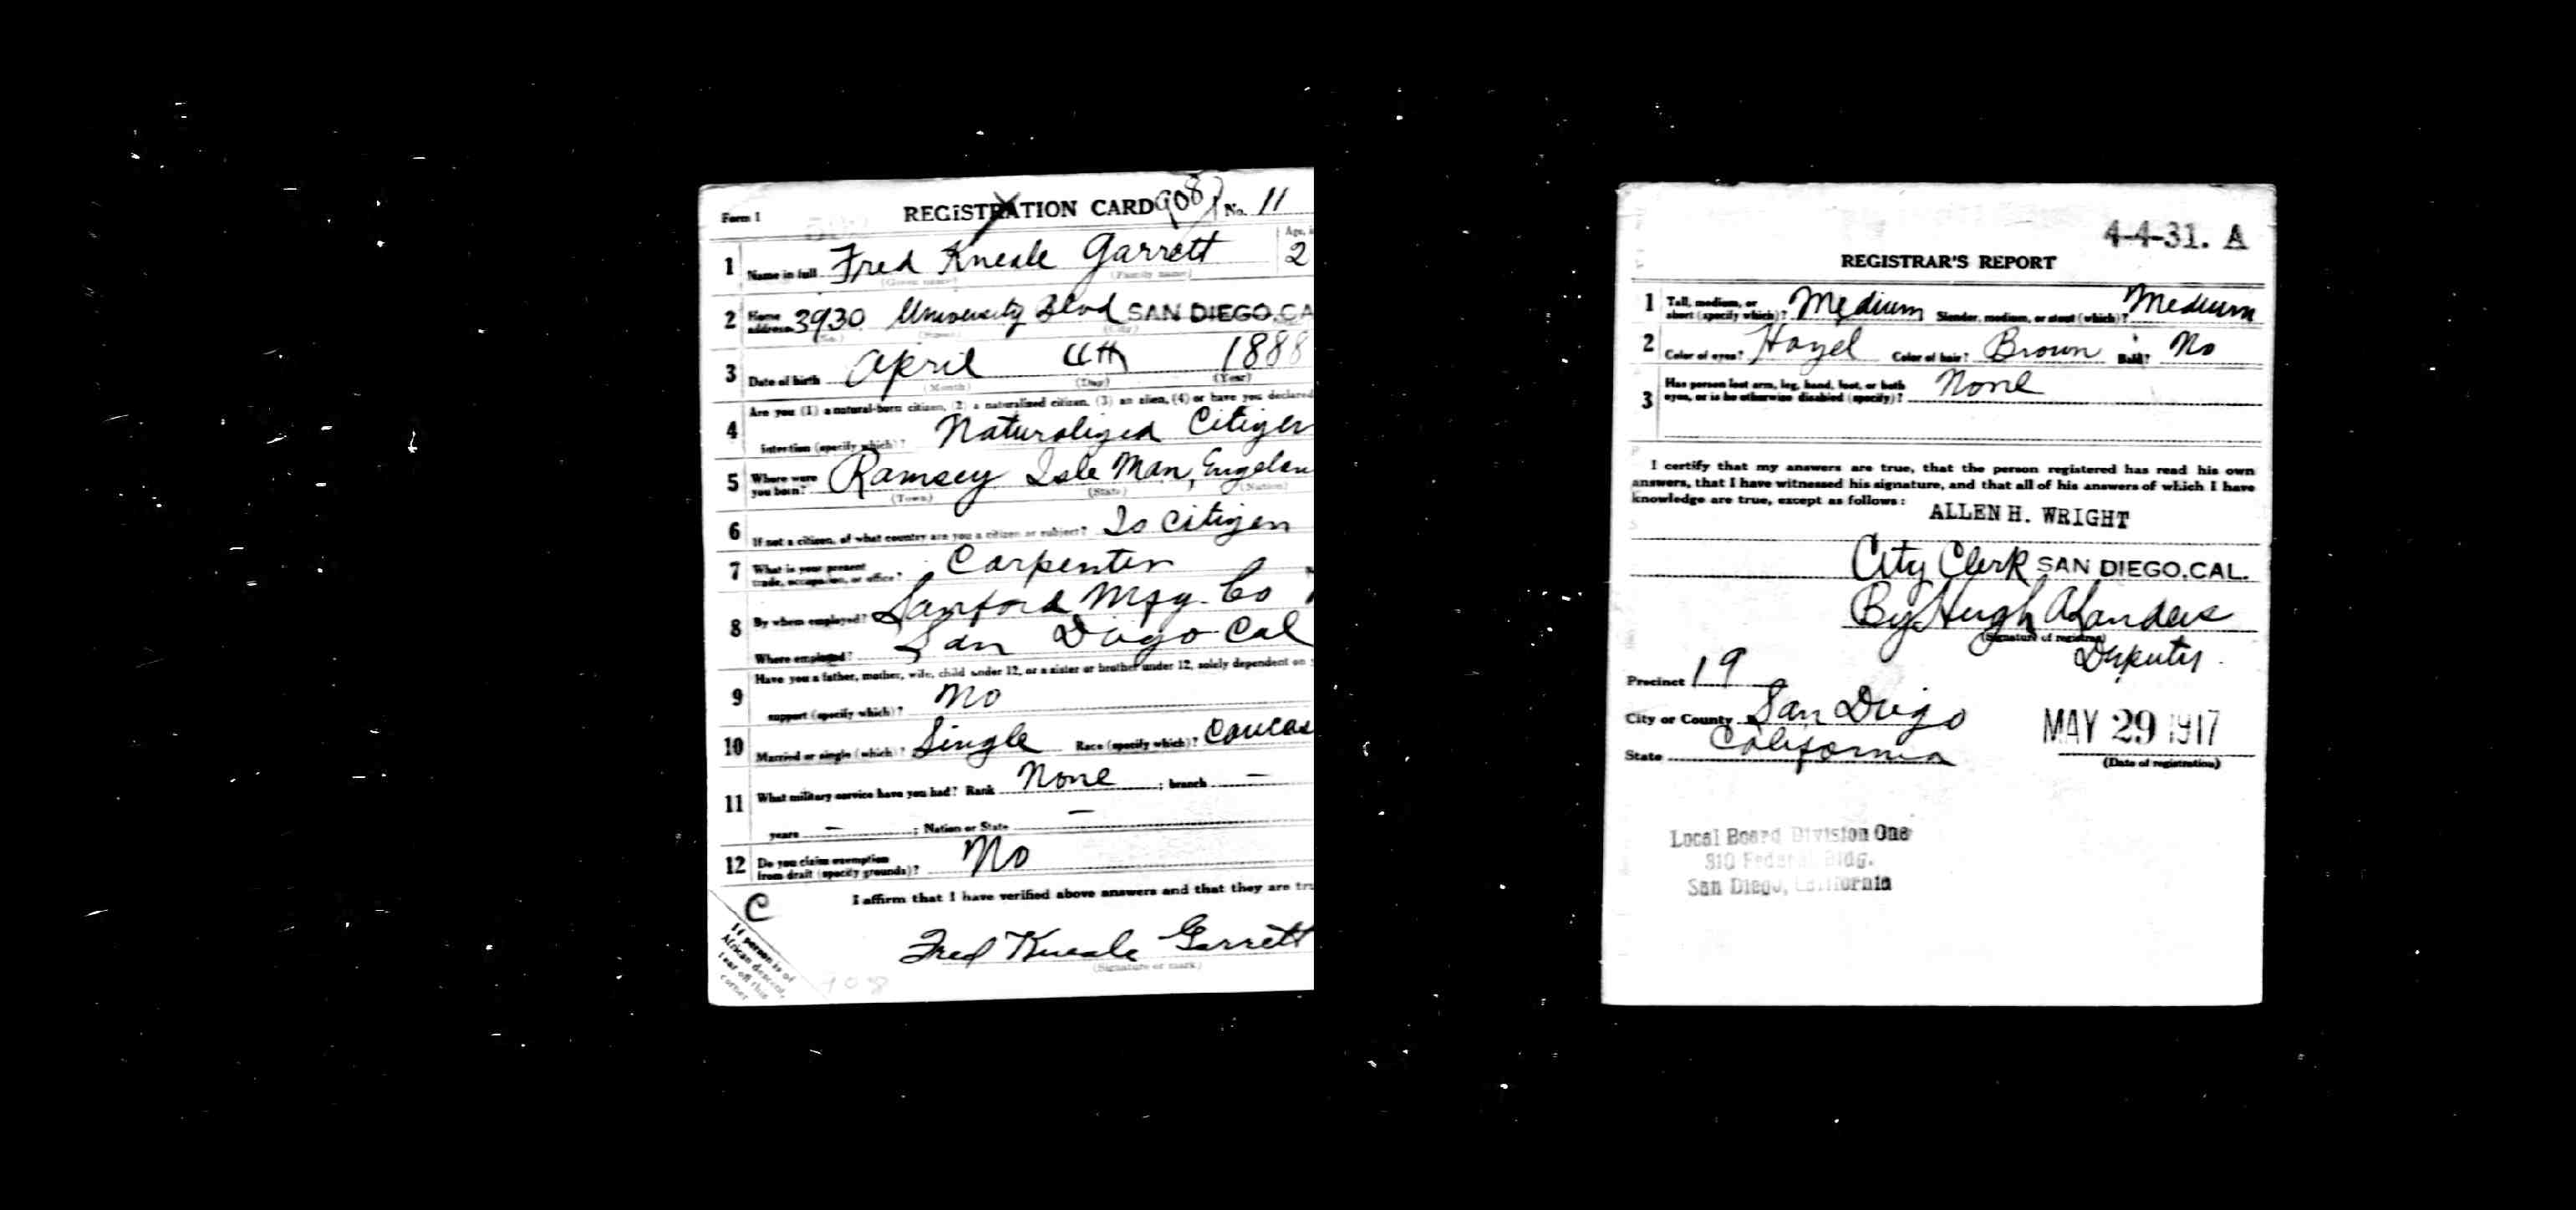 Form 1 REGISTRATION CARD 908 No. 11
1 Name in full Fred Kneale Garrett Age, i
(Given name) (Family name) 2
2 Home address 3930 University Blvd SAN DIEGO, CA
(No.) (Street) (City)
3 Date of birth April 11th 1888
(Month) (Day) (Year)
4 Are you (1) a natural-born citizen, (2) a naturalized citizen, (3) an alien, (4) or have you declared
intention (specify which)? Naturalized Citizen
5 Where were you born? Ramsey Isle Man, Engelan
(Town) (State) (Nation)
6 If not a citizen, of what country are you a citizen or subject? Is Citizen
7 What is your present trade, occupation, or office? Carpenter
8 By whom employed? Sanford Mfg. Co
Where employed? San Diego Cal
9 Have you a father, mother, wife, child under 12, or a sister or brother under 12, solely dependent on
support (specify which)? No
10 Married or single (which)? Single Race (specify which)? Caucas
11 What military service have you had? Rank None ; branch —
years — ; Nation or State —
12 Do you claim exemption from draft (specify grounds)? No
I affirm that I have verified above answers and that they are tru
C
If person is of
African descent,
tear off this
corner
Fred Kneale Garrett
(Signature or mark)
908
4-4-31. A
REGISTRAR'S REPORT
1 Tall, medium, or short (specify which)? Medium Slender, medium, or stout (which)? Medium
2 Color of eyes? Hazel Color of hair? Brown Bald? No
3 Has person lost arm, leg, hand, foot, or both eyes, or is he otherwise disabled (specify)? None
I certify that my answers are true, that the person registered has read his own
answers, that I have witnessed his signature, and that all of his answers of which I have
knowledge are true, except as follows:
ALLEN H. WRIGHT
City Clerk SAN DIEGO, CAL.
By Hugh A Sanders
(Signature of registrar)
Deputy
Precinct 19
City or County San Diego
State California
MAY 29 1917
(Date of registration)
Local Board Division One
310 Federal Bldg.
San Diego, California